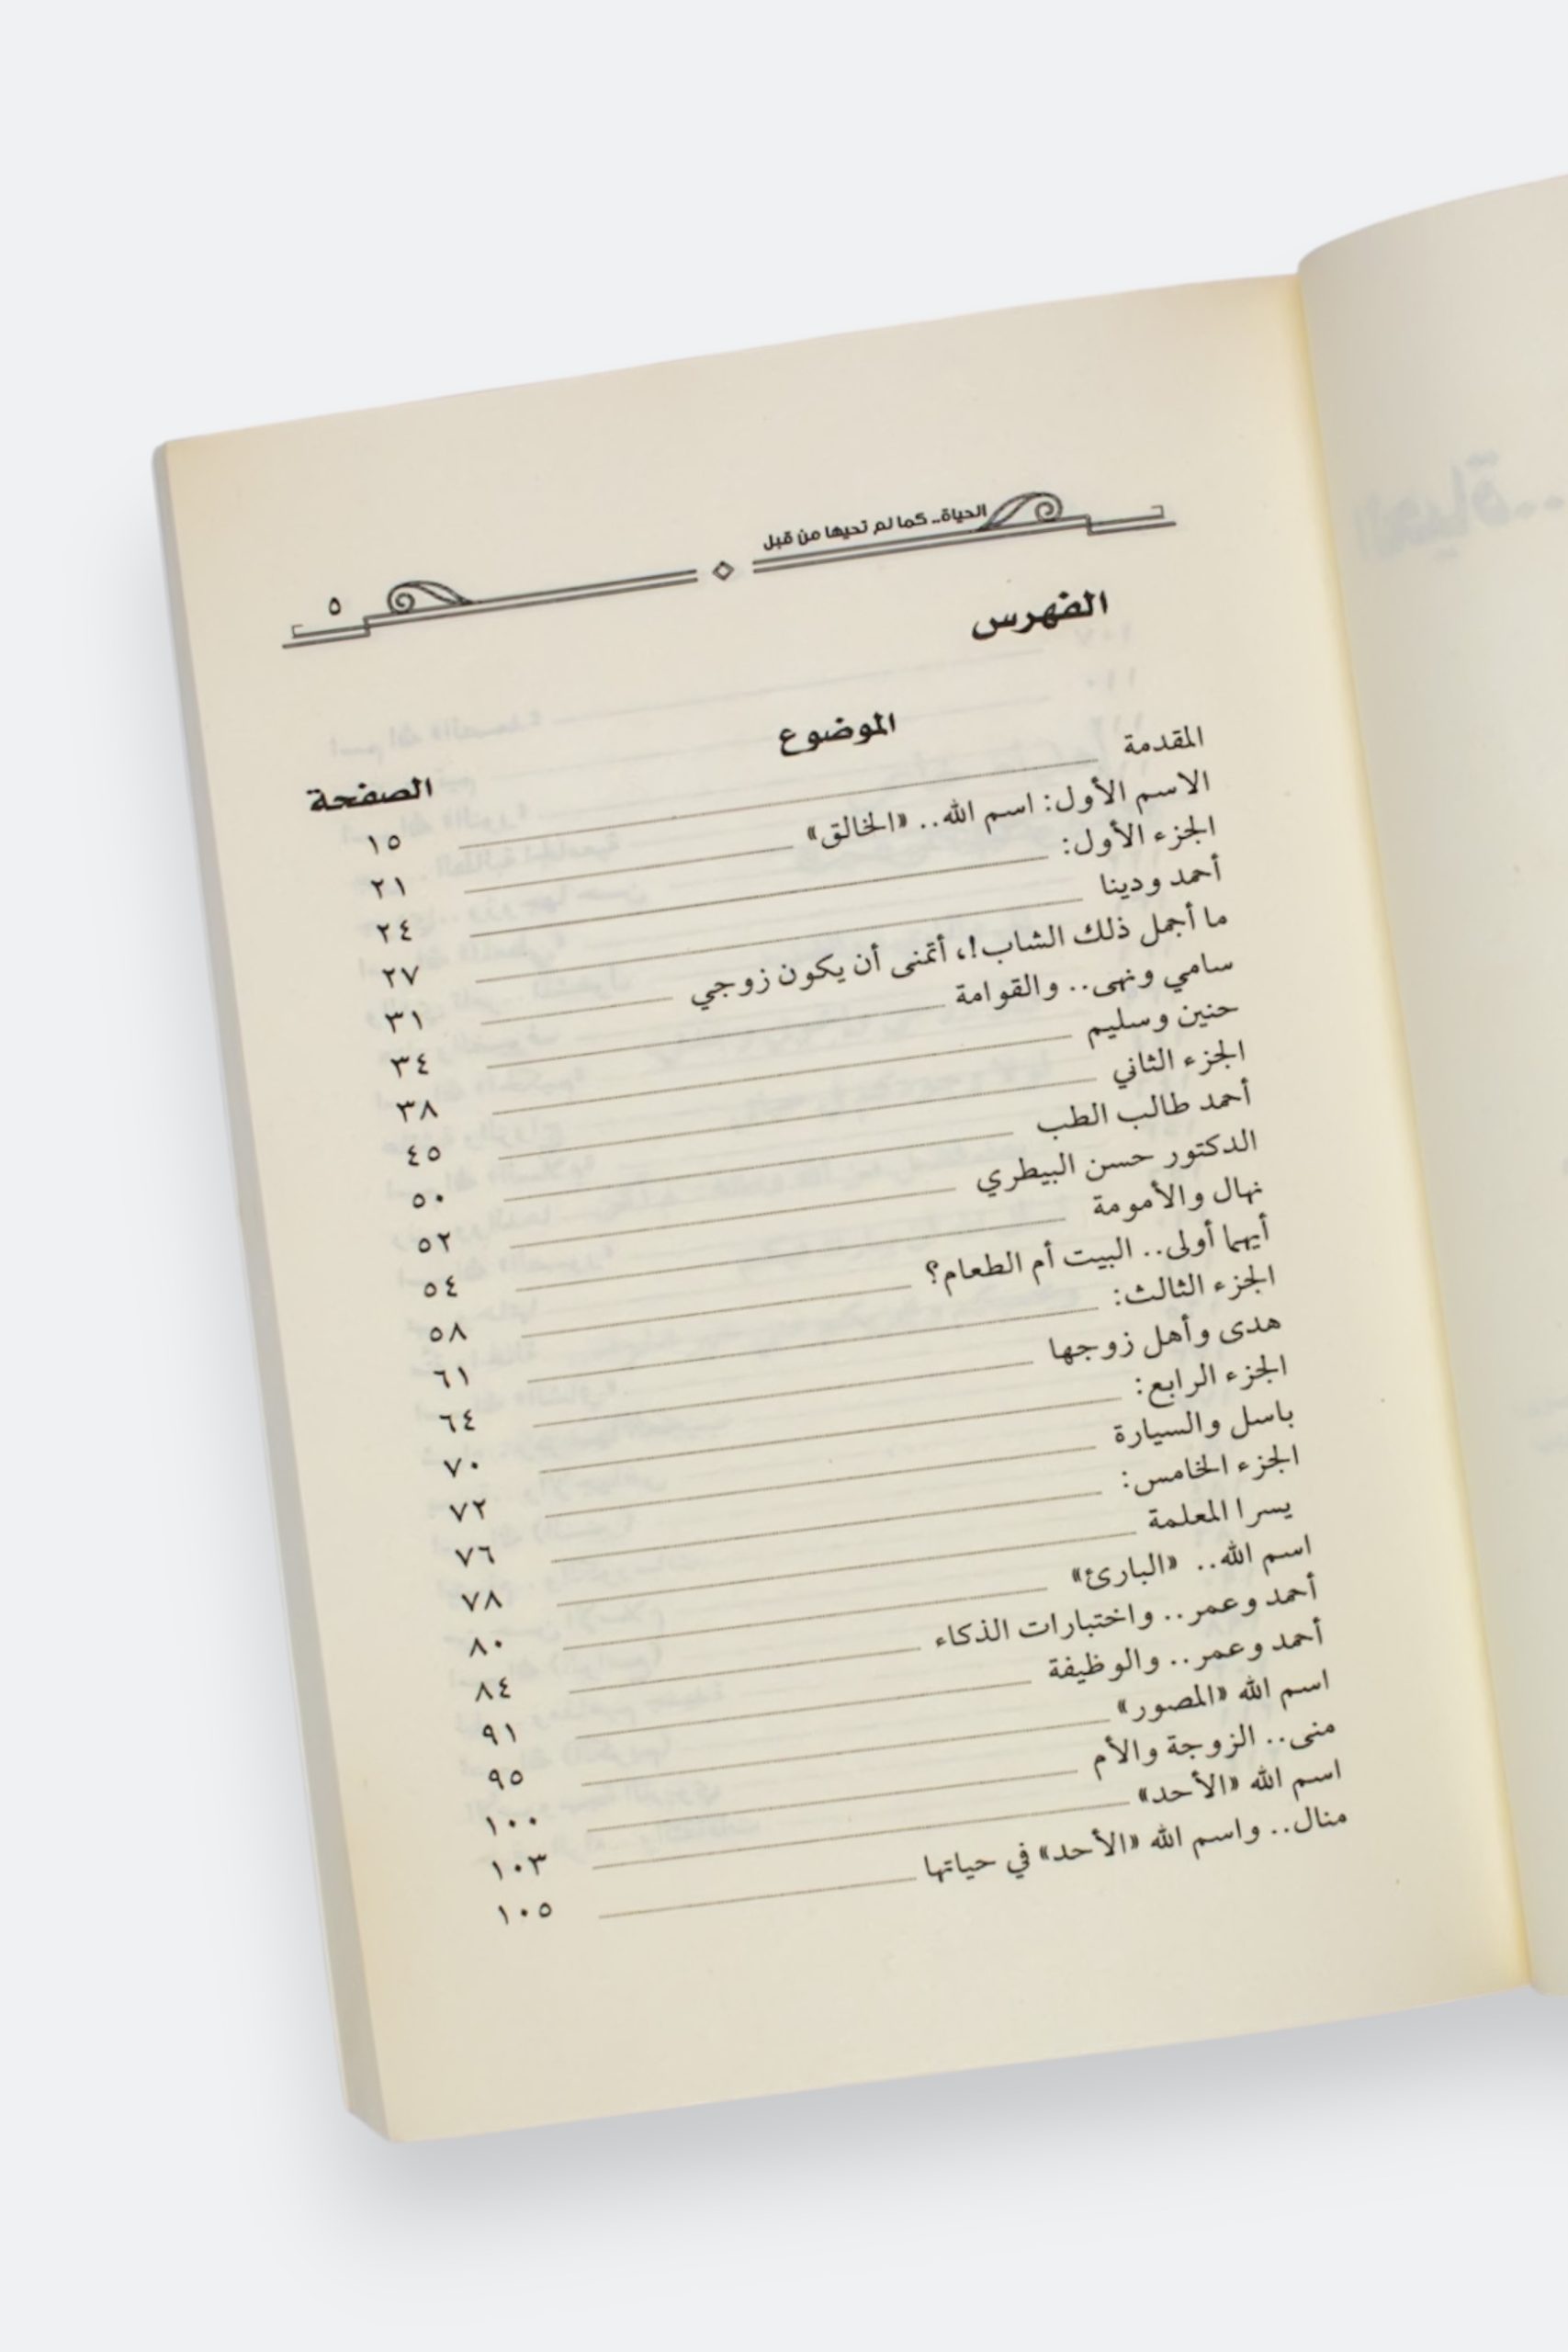 الحياة.. كما لم تحيها من قبل ٥
الفهرس
الموضوع الصفحة
المقدمة ١٥
الاسم الأول: اسم الله.. «الخالق» ٢١
الجزء الأول: ٢٤
أحمد ودينا ٢٧
ما أجمل ذلك الشاب!، أتمنى أن يكون زوجي ٣١
سامي ونهى.. والقوامة ٣٤
حنين وسليم ٣٨
الجزء الثاني ٤٥
أحمد طالب الطب ٥٠
الدكتور حسن البيطري ٥٢
نهال والأمومة ٥٤
أيهما أولى.. البيت أم الطعام؟ ٥٨
الجزء الثالث: ٦١
هدى وأهل زوجها ٦٤
الجزء الرابع: ٧٠
باسل والسيارة ٧٢
الجزء الخامس: ٧٦
يسرا المعلمة ٧٨
اسم الله.. «البارئ» ٨٠
أحمد وعمر.. واختبارات الذكاء ٨٤
أحمد وعمر.. والوظيفة ٩١
اسم الله «المصور» ٩٥
منى.. الزوجة والأم ١٠٠
اسم الله «الأحد» ١٠٣
منال.. واسم الله «الأحد» في حياتها ١٠٥